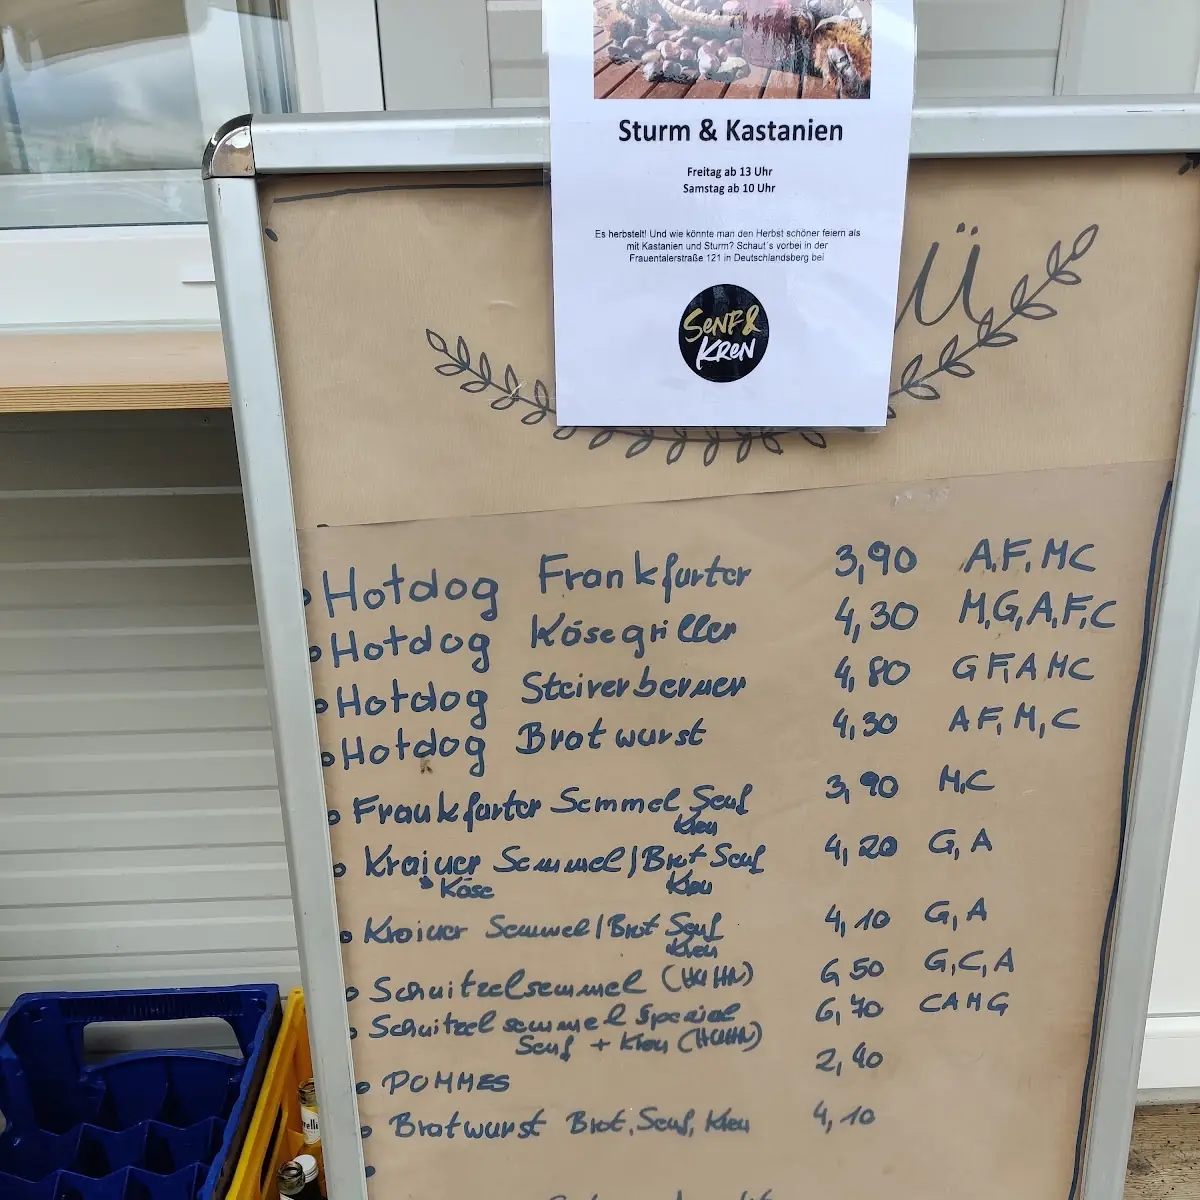 Sturm & Kastanien
Freitag ab 13 Uhr
Samstag ab 10 Uhr
Es herbstelt! Und wie könnte man den Herbst schöner feiern als
mit Kastanien und Sturm? Schaut´s vorbei in der
Frauentalerstraße 121 in Deutschlandsberg bei
SENF&
KREN
Ü
Hotdog Frankfurter 3,90 A,F,MC
Hotdog Käsegriller 4,30 M,G,A,F,C
Hotdog Steirerberner 4,80 G F,A MC
Hotdog Bratwurst 4,30 A F,M,C
Frankfurter Semmel Senf 3,90 M,C
Kren
Krainer Semmel/Brot Senf 4,20 G,A
Käse Kren
Krainer Semmel/Brot Senf 4,10 G,A
Kren
Schnitzelsemmel (HUHN) 6 50 G,C,A
Schnitzelsemmel Spezial 6,70 CAMG
Senf + Kren (HUHN)
POMMES 2,40
Bratwurst Brot, Senf, Kren 4,10